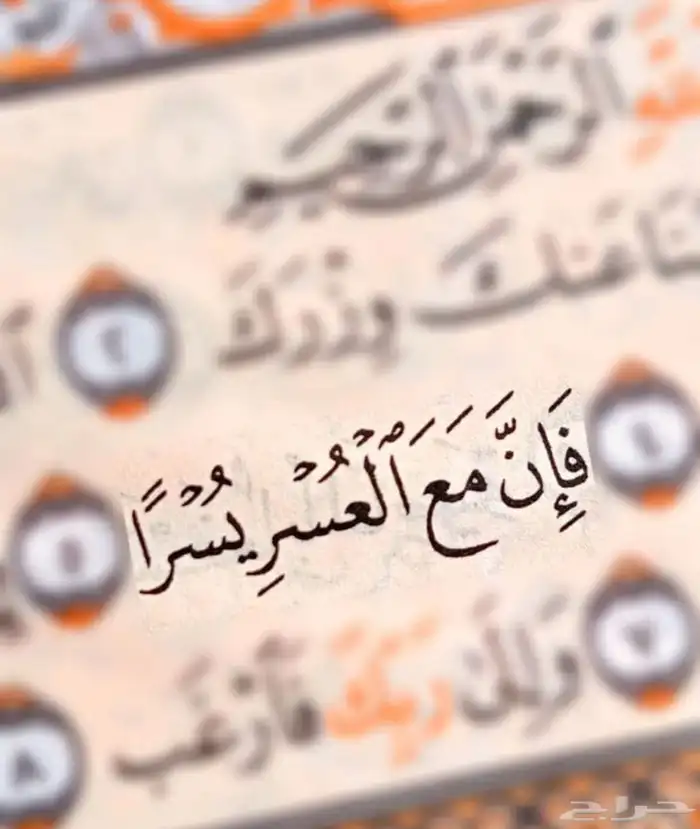 الرَّحْمَٰنِ الرَّحِيمِ
عَنكَ وِزْرَكَ ٢
٤ فَإِنَّ مَعَ ٱلْعُسْرِ يُسْرًا ٥
٧ وَإِلَىٰ رَبِّكَ فَٱرْغَب ٨
حراج